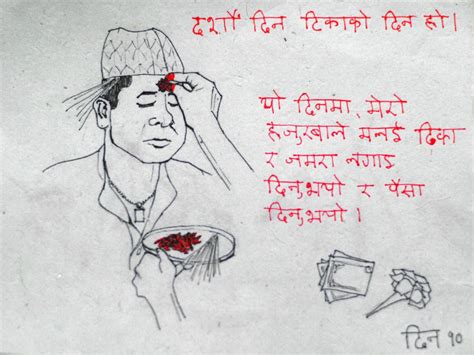 दशौँ दिन टिकाको दिन हो।
यो दिनमा, मेरो
हजुरबाले मलाई टिका
र जमरा लगाइ
दिनुभयो र पैसा
दिनुभयो ।
दिन १०